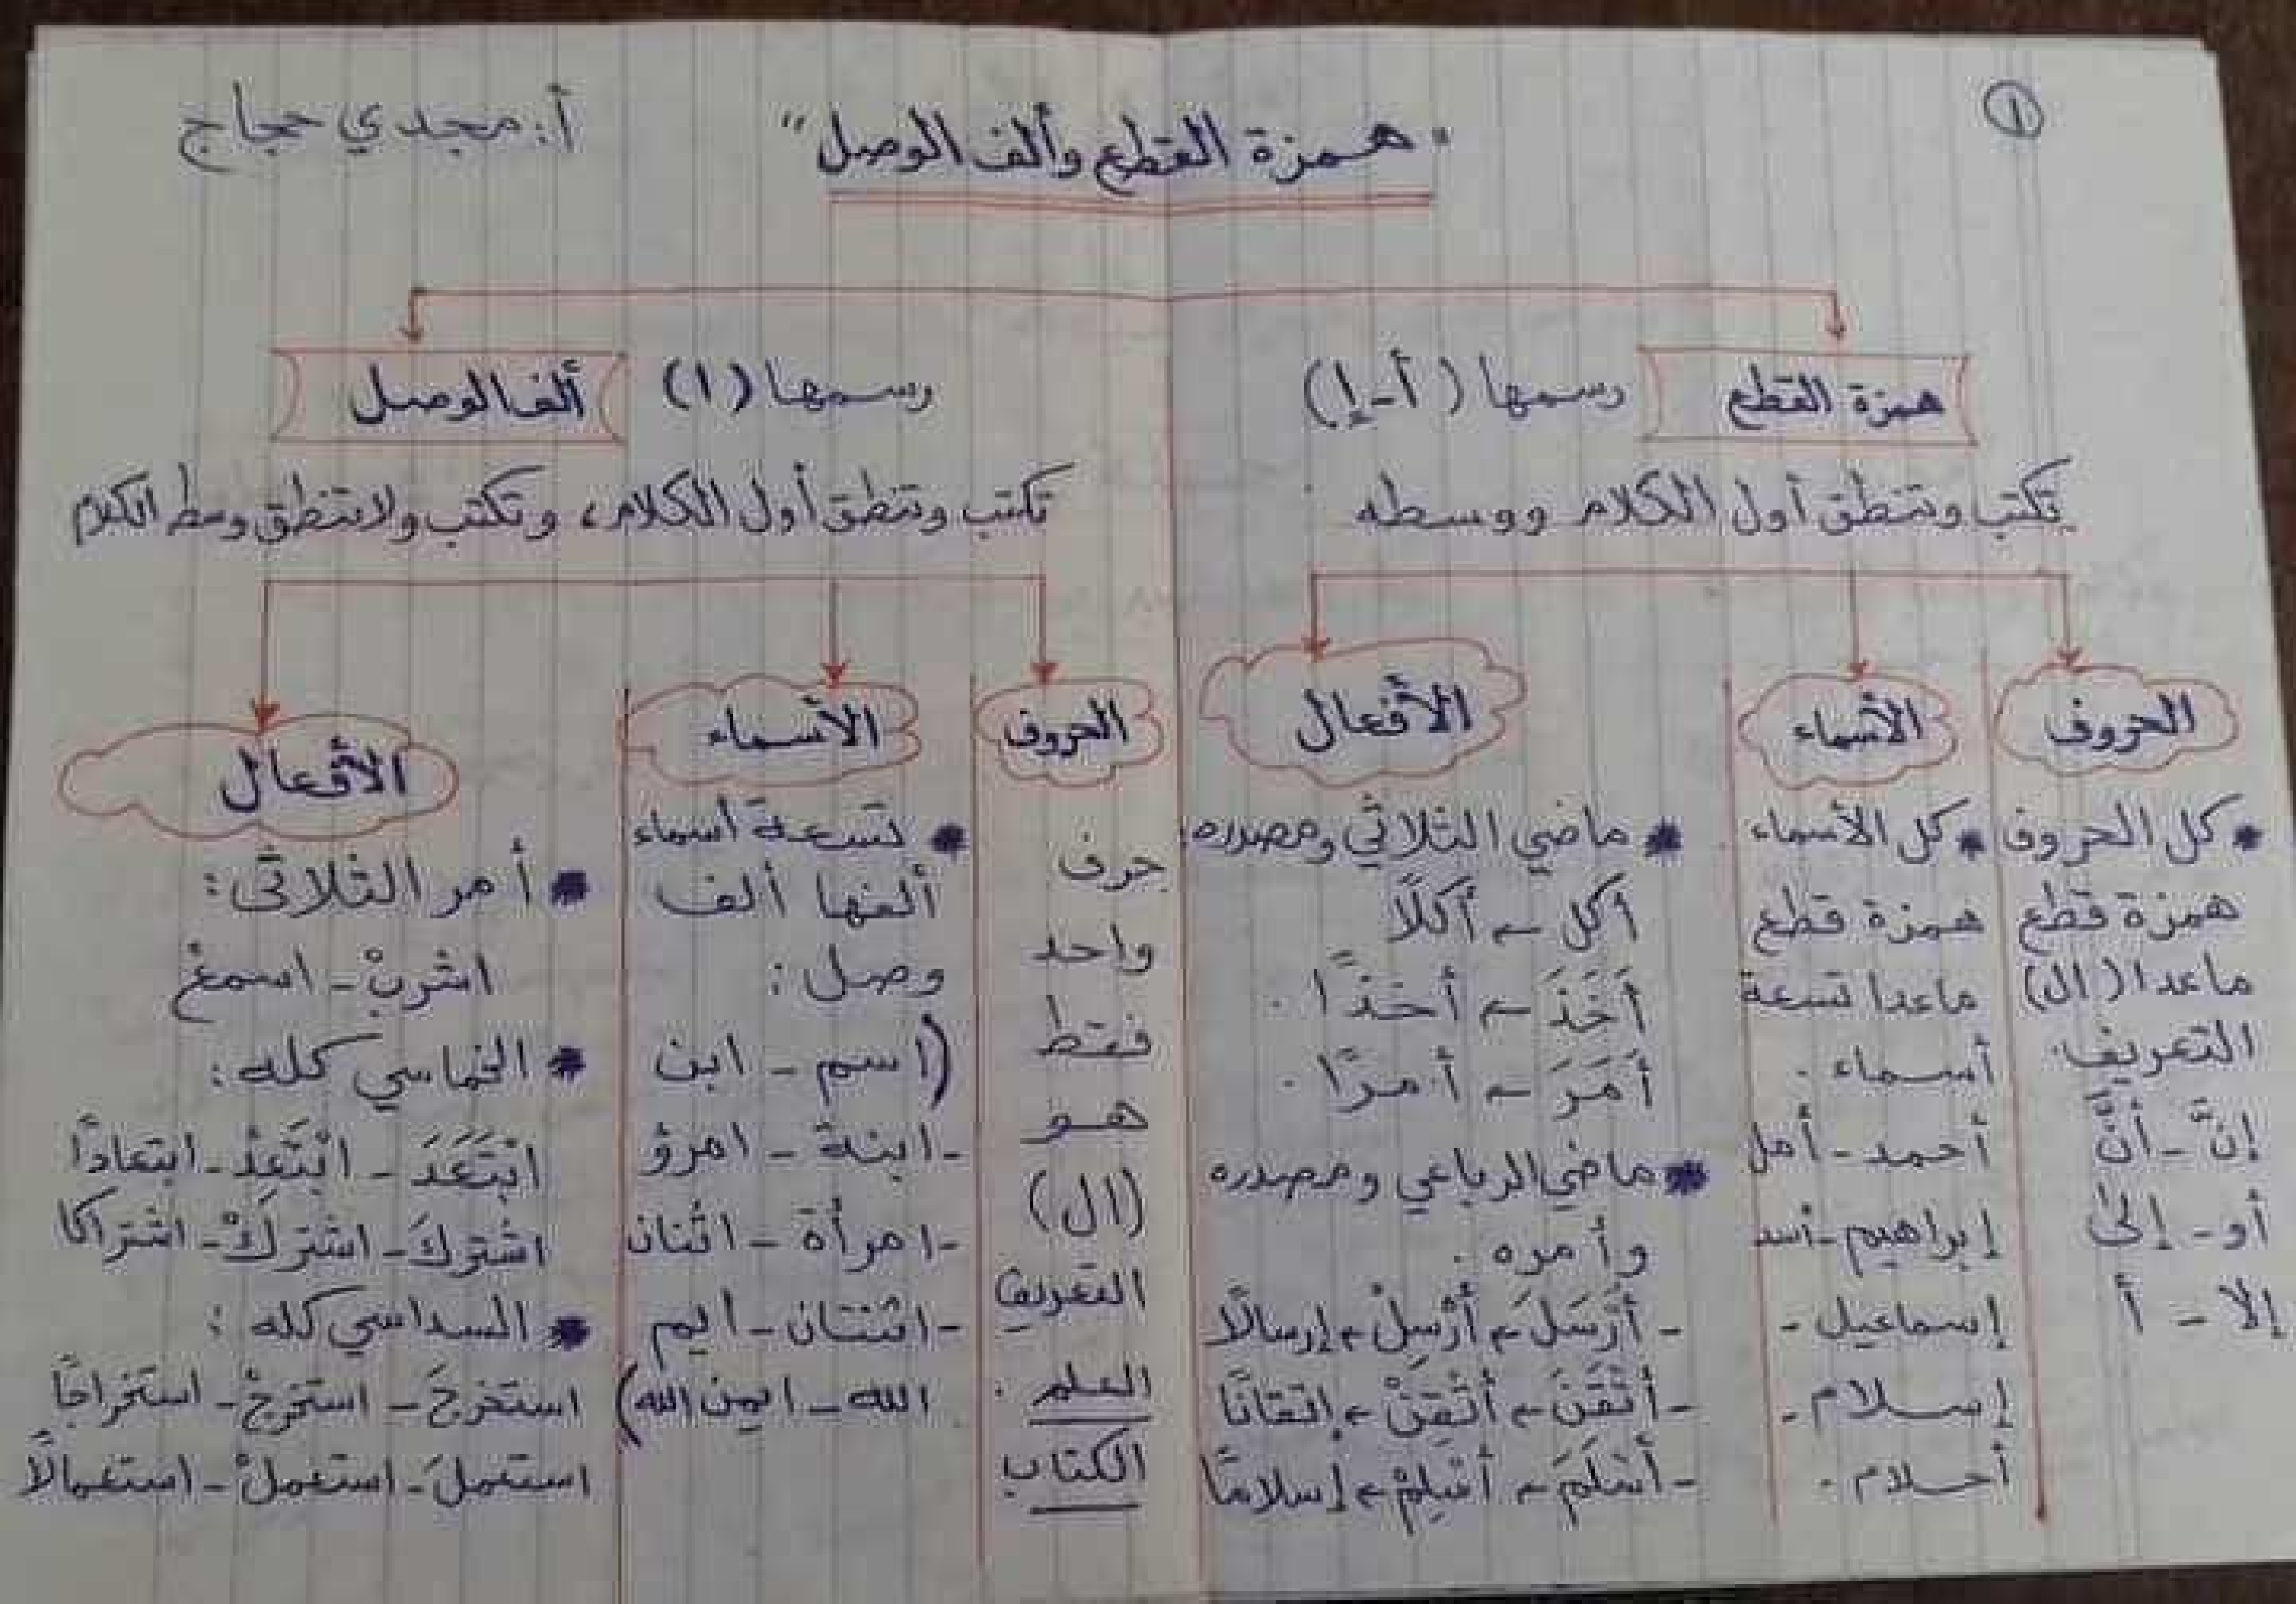 ١
"همزة القطع وألف الوصل"
أ: مجدي حجاج
همزة القطع
رسمها (أ-إ)
تكتب وتنطق أول الكلام ووسطه
الحروف
* كل الحروف
همزة قطع
ماعدا (ال)
التعريف.
إنَّ - أنَّ
أو - إلى
إلا - أ
الأسماء
* كل الأسماء
همزة قطع
ماعدا تسعة
أسماء.
أحمد - أمل
إبراهيم - أسد
إسماعيل -
إسلام -
أحلام.
الأفعال
* ماضي الثلاثي ومصدره:
أكل ← أكلًا
أَخَذَ ← أخذًا.
أَمَرَ ← أمرًا.
* ماضي الرباعي ومصدره
وأمره.
- أَرْسَلَ ← أَرْسِلْ ← إرسالًا
- أَتْقَنَ ← أَتْقِنْ ← إتقانًا
- أَسْلَمَ ← أَسْلِمْ ← إسلامًا
ألف الوصل
رسمها (ا)
تكتب وتنطق أول الكلام، وتكتب ولاتنطق وسط الكلام
الحروف
حرف
واحد
فقط
هو
(ال)
التعريف
العلم.
الكتاب
الأسماء
* تسعة أسماء
ألفها ألف
وصل:
(اسم - ابن
- ابنة - امرؤ
- امرأة - اثنان
- اثنتان - ايم
الله - ايمن الله)
الأفعال
* أمر الثلاثى:
اشربْ - اسمعْ
* الخماسي كله:
ابْتَعَدَ - ابْتَعِدْ - ابتعادًا
اشتركَ - اشتركْ - اشتراكا
* السداسي كله:
استخرجَ - استخرجْ - استخراجًا
استعملَ - استعملْ - استعمالًا